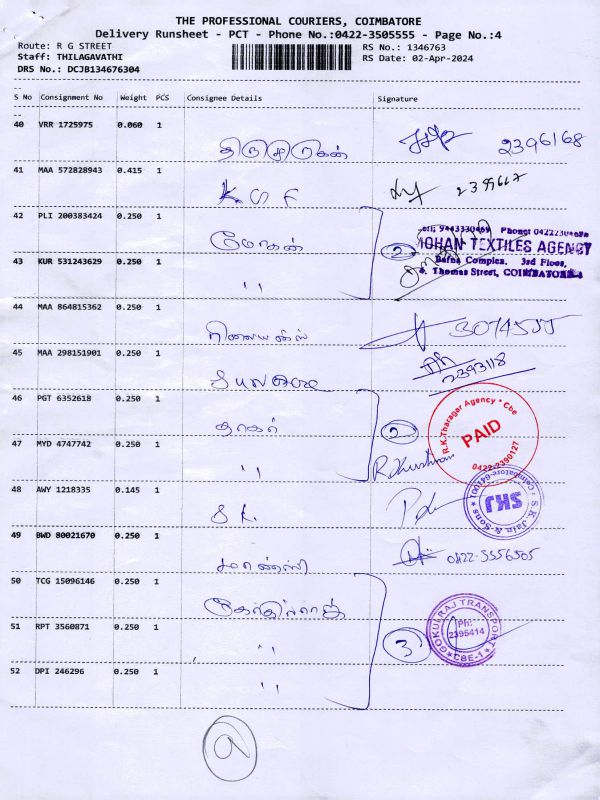 THE PROFESSIONAL COURIERS, COIMBATORE
Delivery Runsheet - PCT - Phone No.:0422-3505555 - Page No.:4
Route: R G STREET
RS No.: 1346763
Staff: THILAGAVATHI
RS Date: 02-Apr-2024
DRS No.: DCJB134676304
S No Consignment No Weight PCS Consignee Details Signature
40 VRR 1725975 0.060 1
2396168
41 MAA 572828943 0.415 1
KSF
42 PLI 200383424 0.250 1
மோகன் 2
Phone: 
MOHAN TEXTILES AGENCY
Bafna Complex, 3rd Floor,
Thomas Street, COIMBATORE-1
43 KUR 531243629 0.250 1
"
44 MAA 864815362 0.250 1
ரிலையன்ஸ்
45 MAA 298151901 0.250 1
2393118
46 PGT 6352618 0.250 1
தாகர் 2
R.K.Tharagar Agency • Cbe
PAID
0422-2390127
47 MYD 4747742 0.250 1
"
48 AWY 1218335 0.145 1
S K.
S.K. Jain & Sons * Coimbatore-641001 *
SKJ
49 BWD 80021670 0.250 1
50 TCG 15096146 0.250 1
51 RPT 3560871 0.250 1
" 3
GOKULRAJ TRANSPORT
Ph:
2395414
CBE-1
52 DPI 246296 0.250 1
"
9